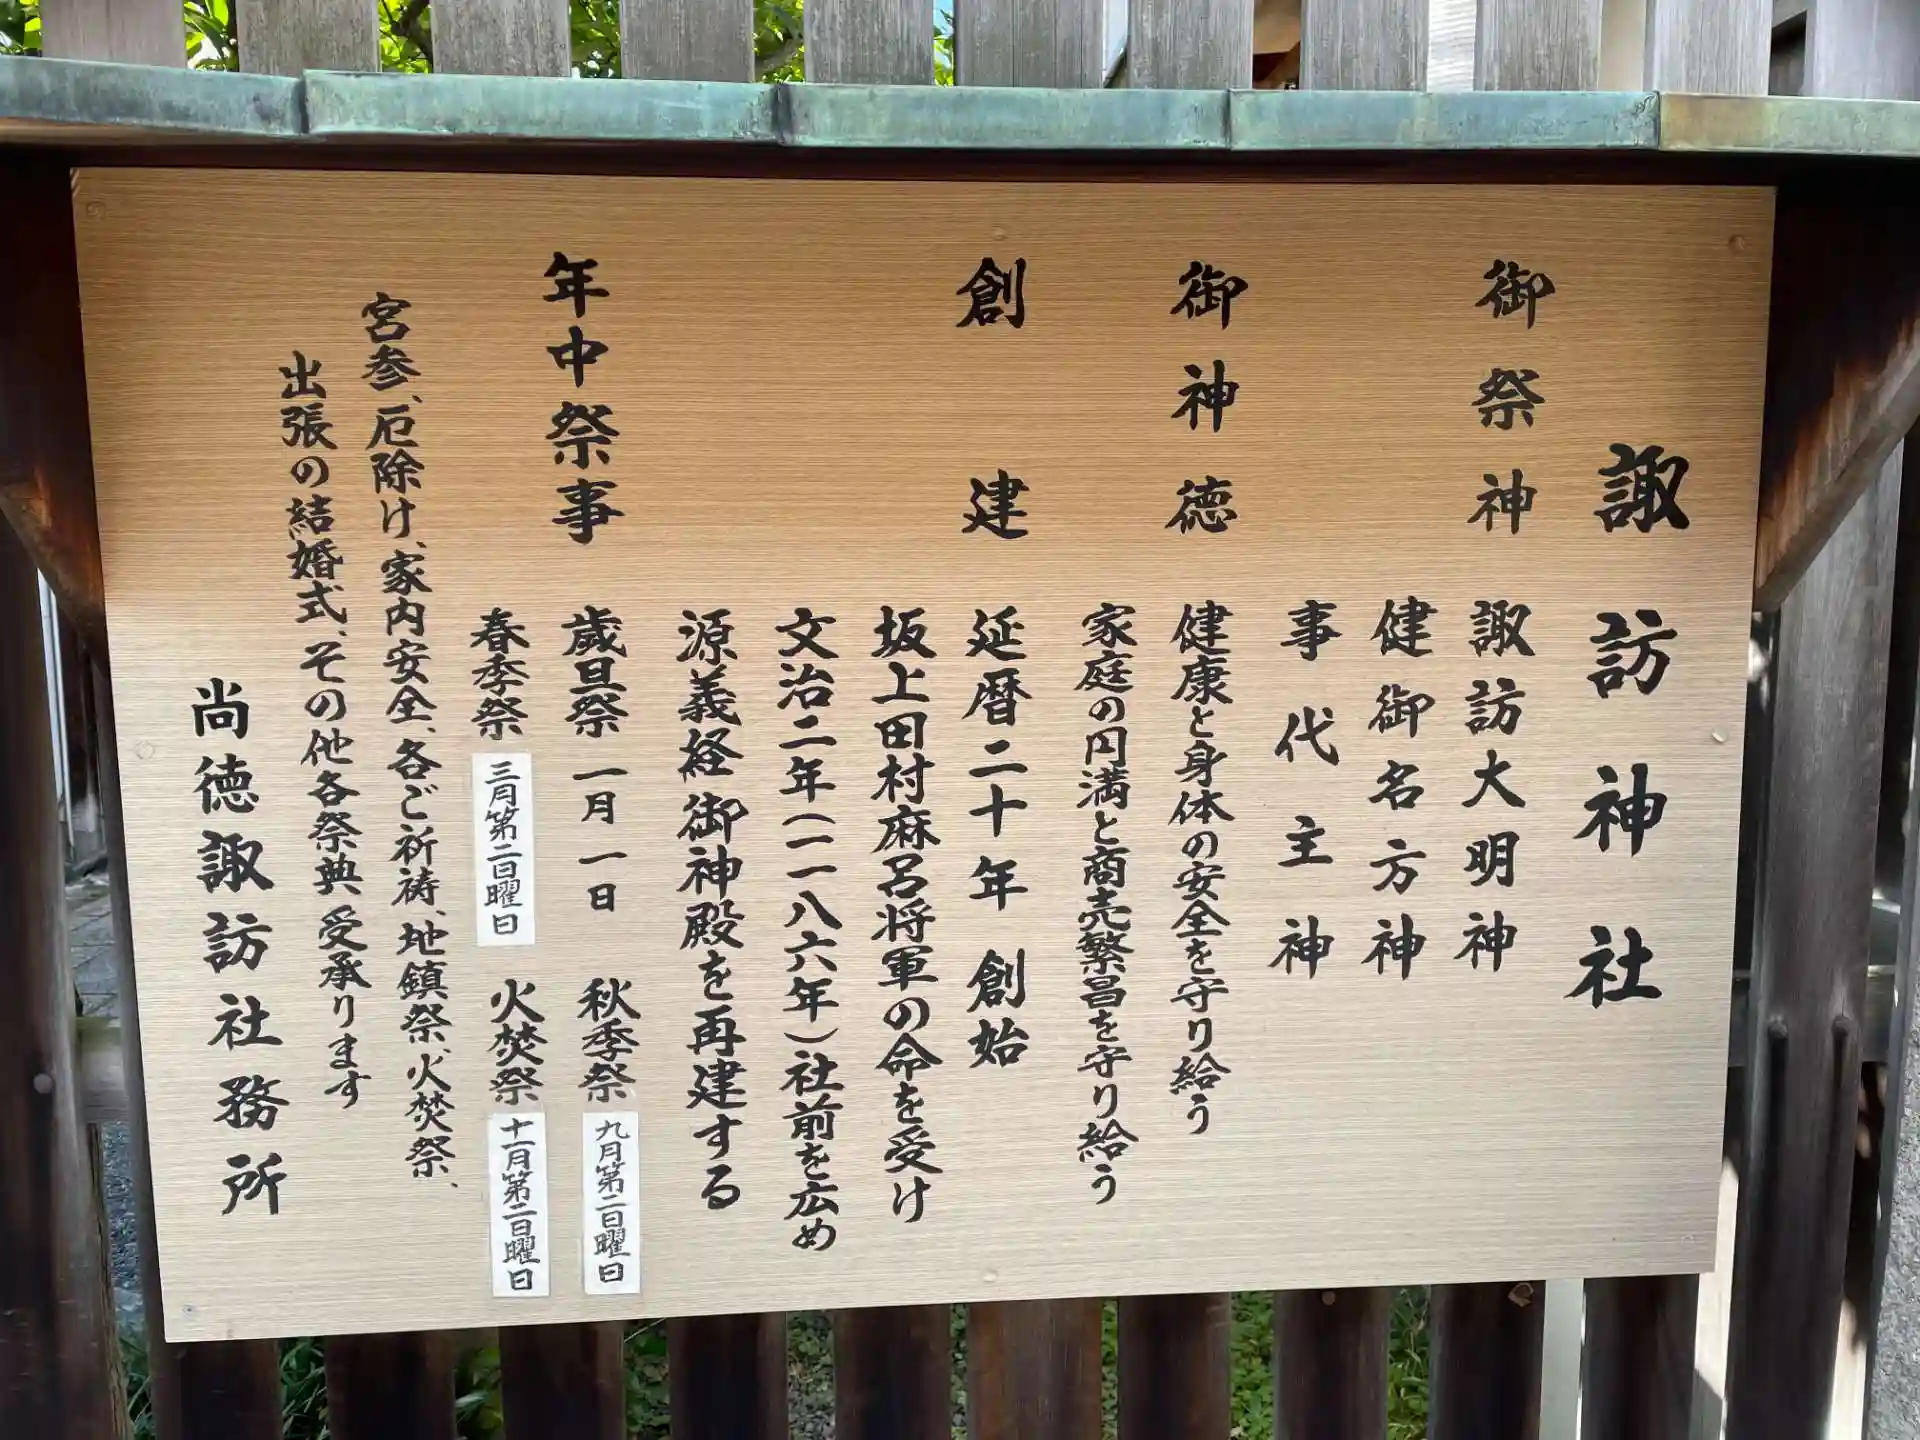 諏訪神社
御祭神 諏訪大明神
健御名方神
事代主神
御神徳 健康と身体の安全を守り給う
家庭の円満と商売繁昌を守り給う
創建 延暦二十年 創始
坂上田村麻呂将軍の命を受け
文治二年(一一八六年)社前を広め
源義経 御神殿を再建する
年中祭事 歳旦祭 一月一日 秋季祭 九月第二日曜日
春季祭 三月第二日曜日 火焚祭 十一月第二日曜日
宮参、厄除け、家内安全、各ご祈祷、地鎮祭、火焚祭、
出張の結婚式、その他各祭典 受承ります
尚徳諏訪社務所